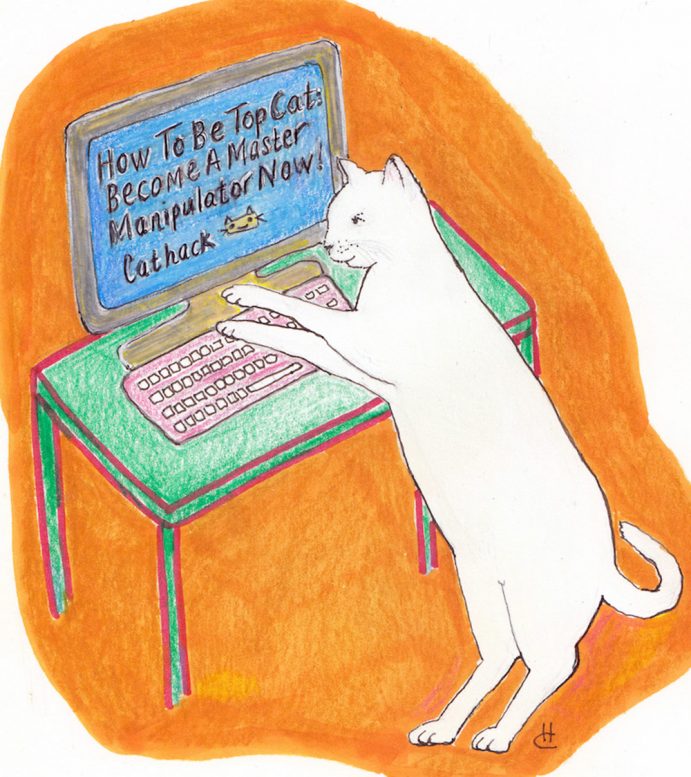 How To Be Top Cat:
Become A Master
Manipulator Now!
Cathack
HC